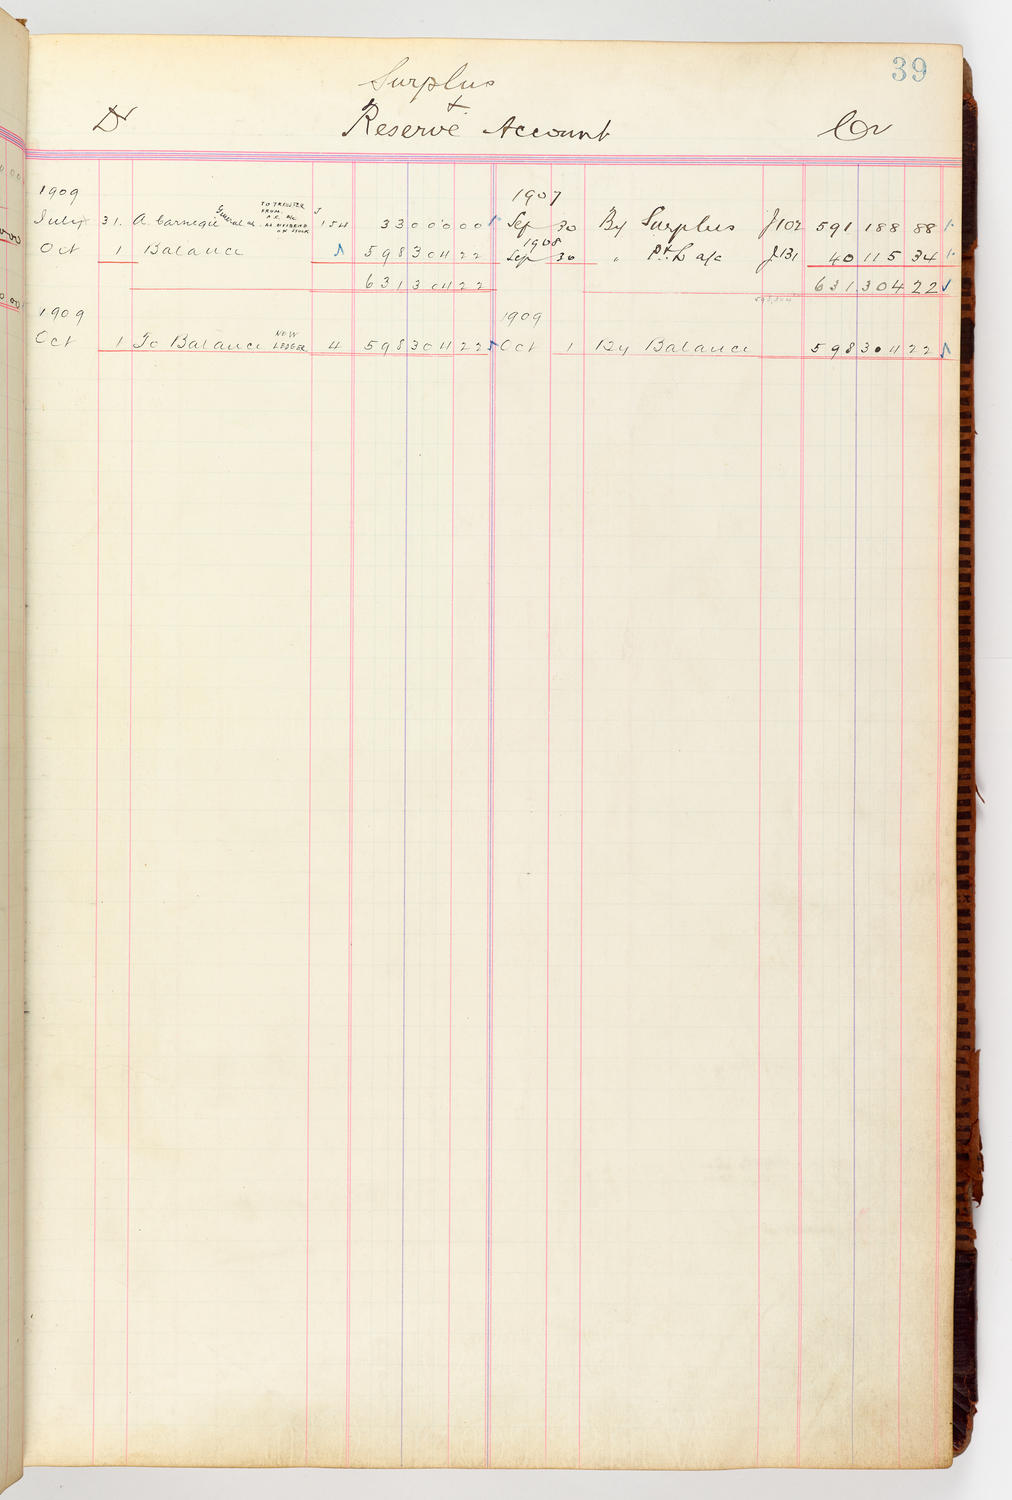 39
Surplus
+
Dr Reserve Account Cr
1909 1907
July 31. A. Carnegie General a/c TO TRANSFER FROM A.C. a/c AS DIVIDEND ON STOCK J 154 33 000 00 Sep 30 By Surplus J102 591 188 88
1908
Oct 1 Balance 598 304 22 Sep 30 " P + L a/c J131 40 115 34
631 304 22 631 304 22
1909 1909
Oct 1 To Balance NEW LEDGER 4 598 304 22 Oct 1 By Balance 598 304 22